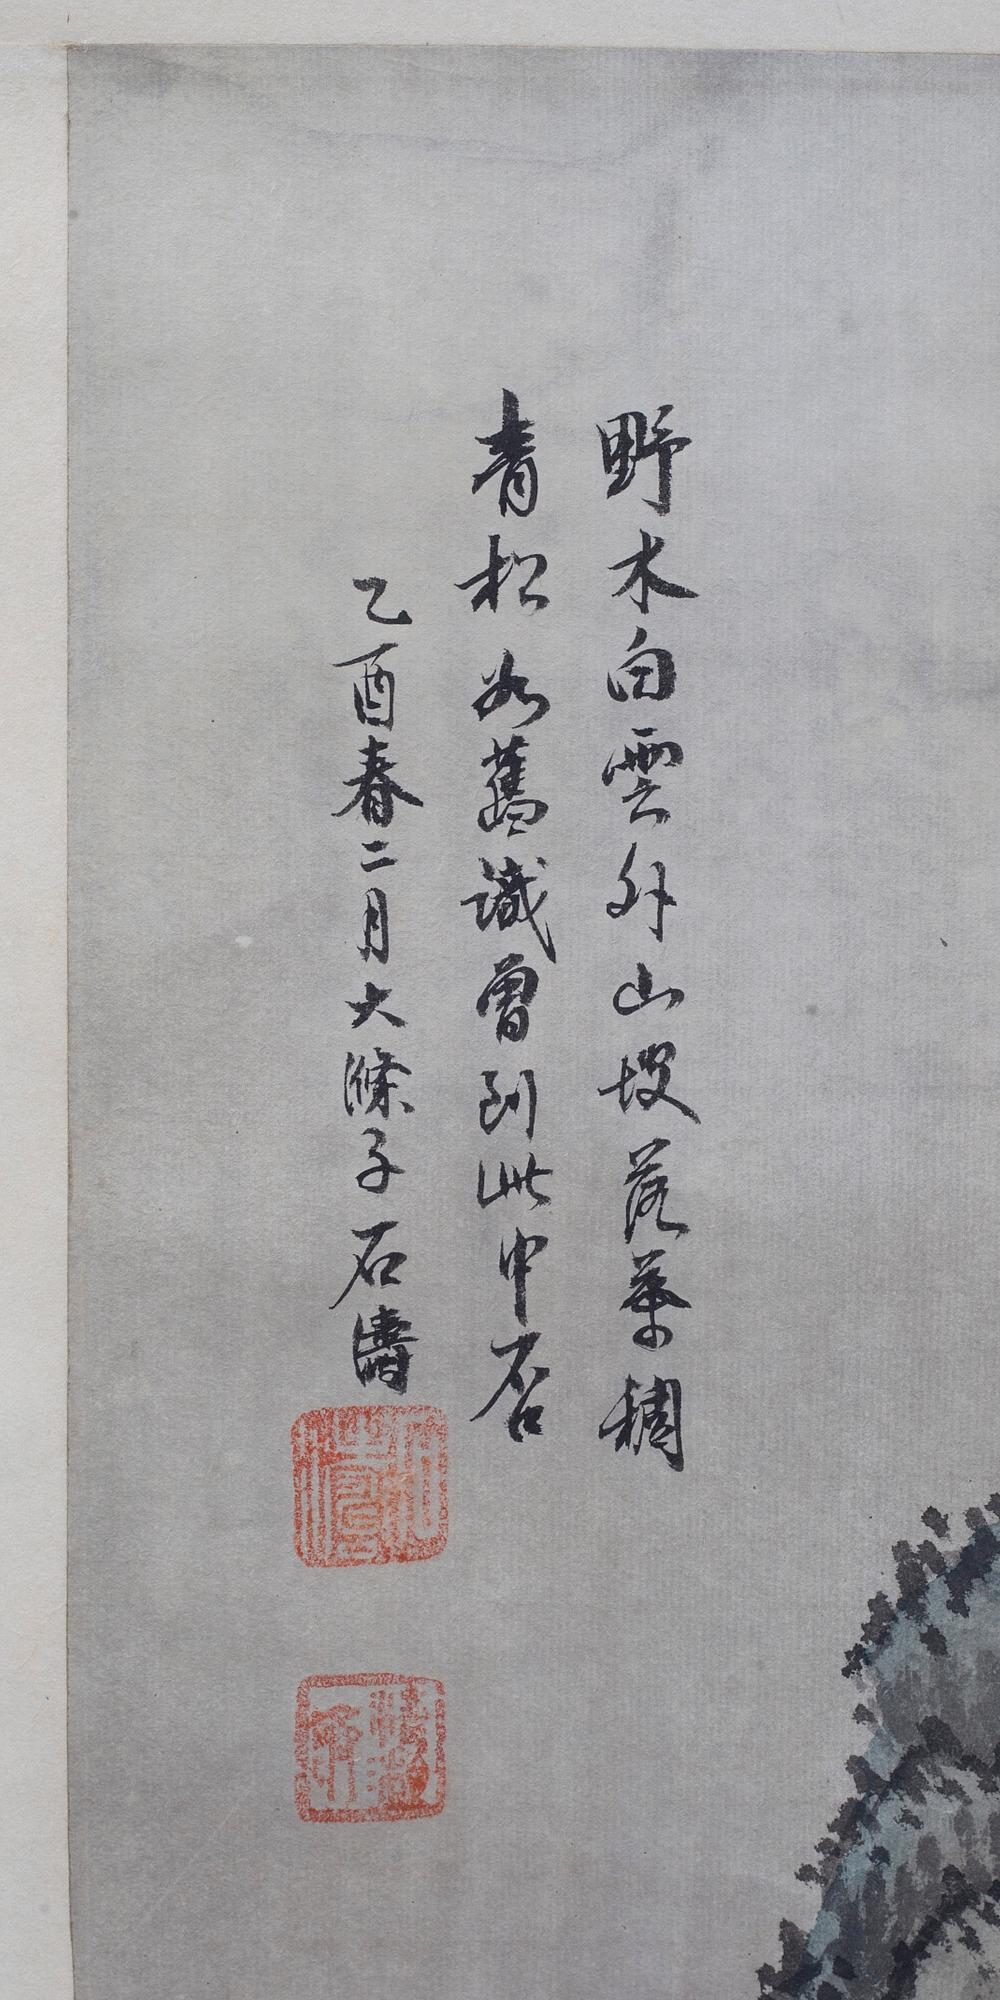 野木白雲外山坡落葉稠
青松如舊識曾到此中否
乙酉春二月大滌子石濤